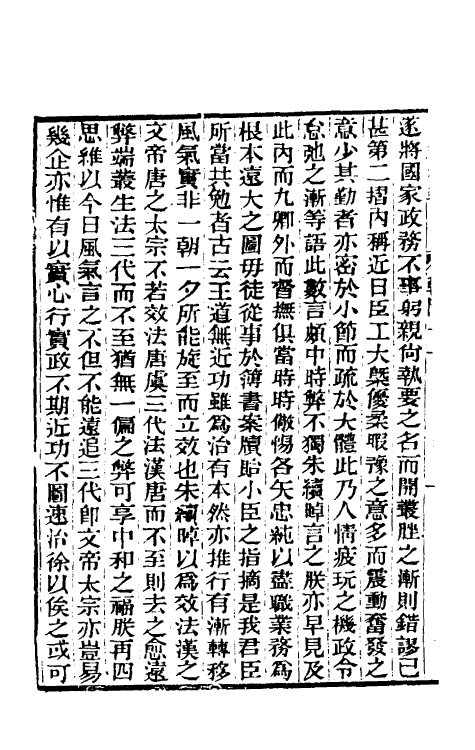 遂將國家政務不事躬親尙執要之名而開叢脞之漸則錯謬已
甚第二摺內稱近日臣工大槩優柔暇豫之意多而震動奮發之
意少其勤者亦密於小節而疏於大體此乃人情疲玩之機政令
怠弛之漸等語此數言頗中時弊不獨朱續晫言之朕亦早見及
此內而九卿外而督撫俱當時時儆惕各矢忠純以盡職業務爲
根本遠大之圖毋徒從事於簿書案牘貽小臣之指摘是我君臣
所當共勉者古云王道無近功雖爲治有本然亦推行有漸轉移
風氣實非一朝一夕所能旋至而立效也朱續晫以爲效法漢之
文帝唐之太宗不若效法唐虞三代法漢唐而不至則去之愈遠
弊端叢生法三代而不至猶無一偏之弊可享中和之福朕再四
思維以今日風氣言之不但不能遠追三代卽文帝太宗亦豈易
幾企亦惟有以實心行實政不期近功不圖速治徐以俟之或可